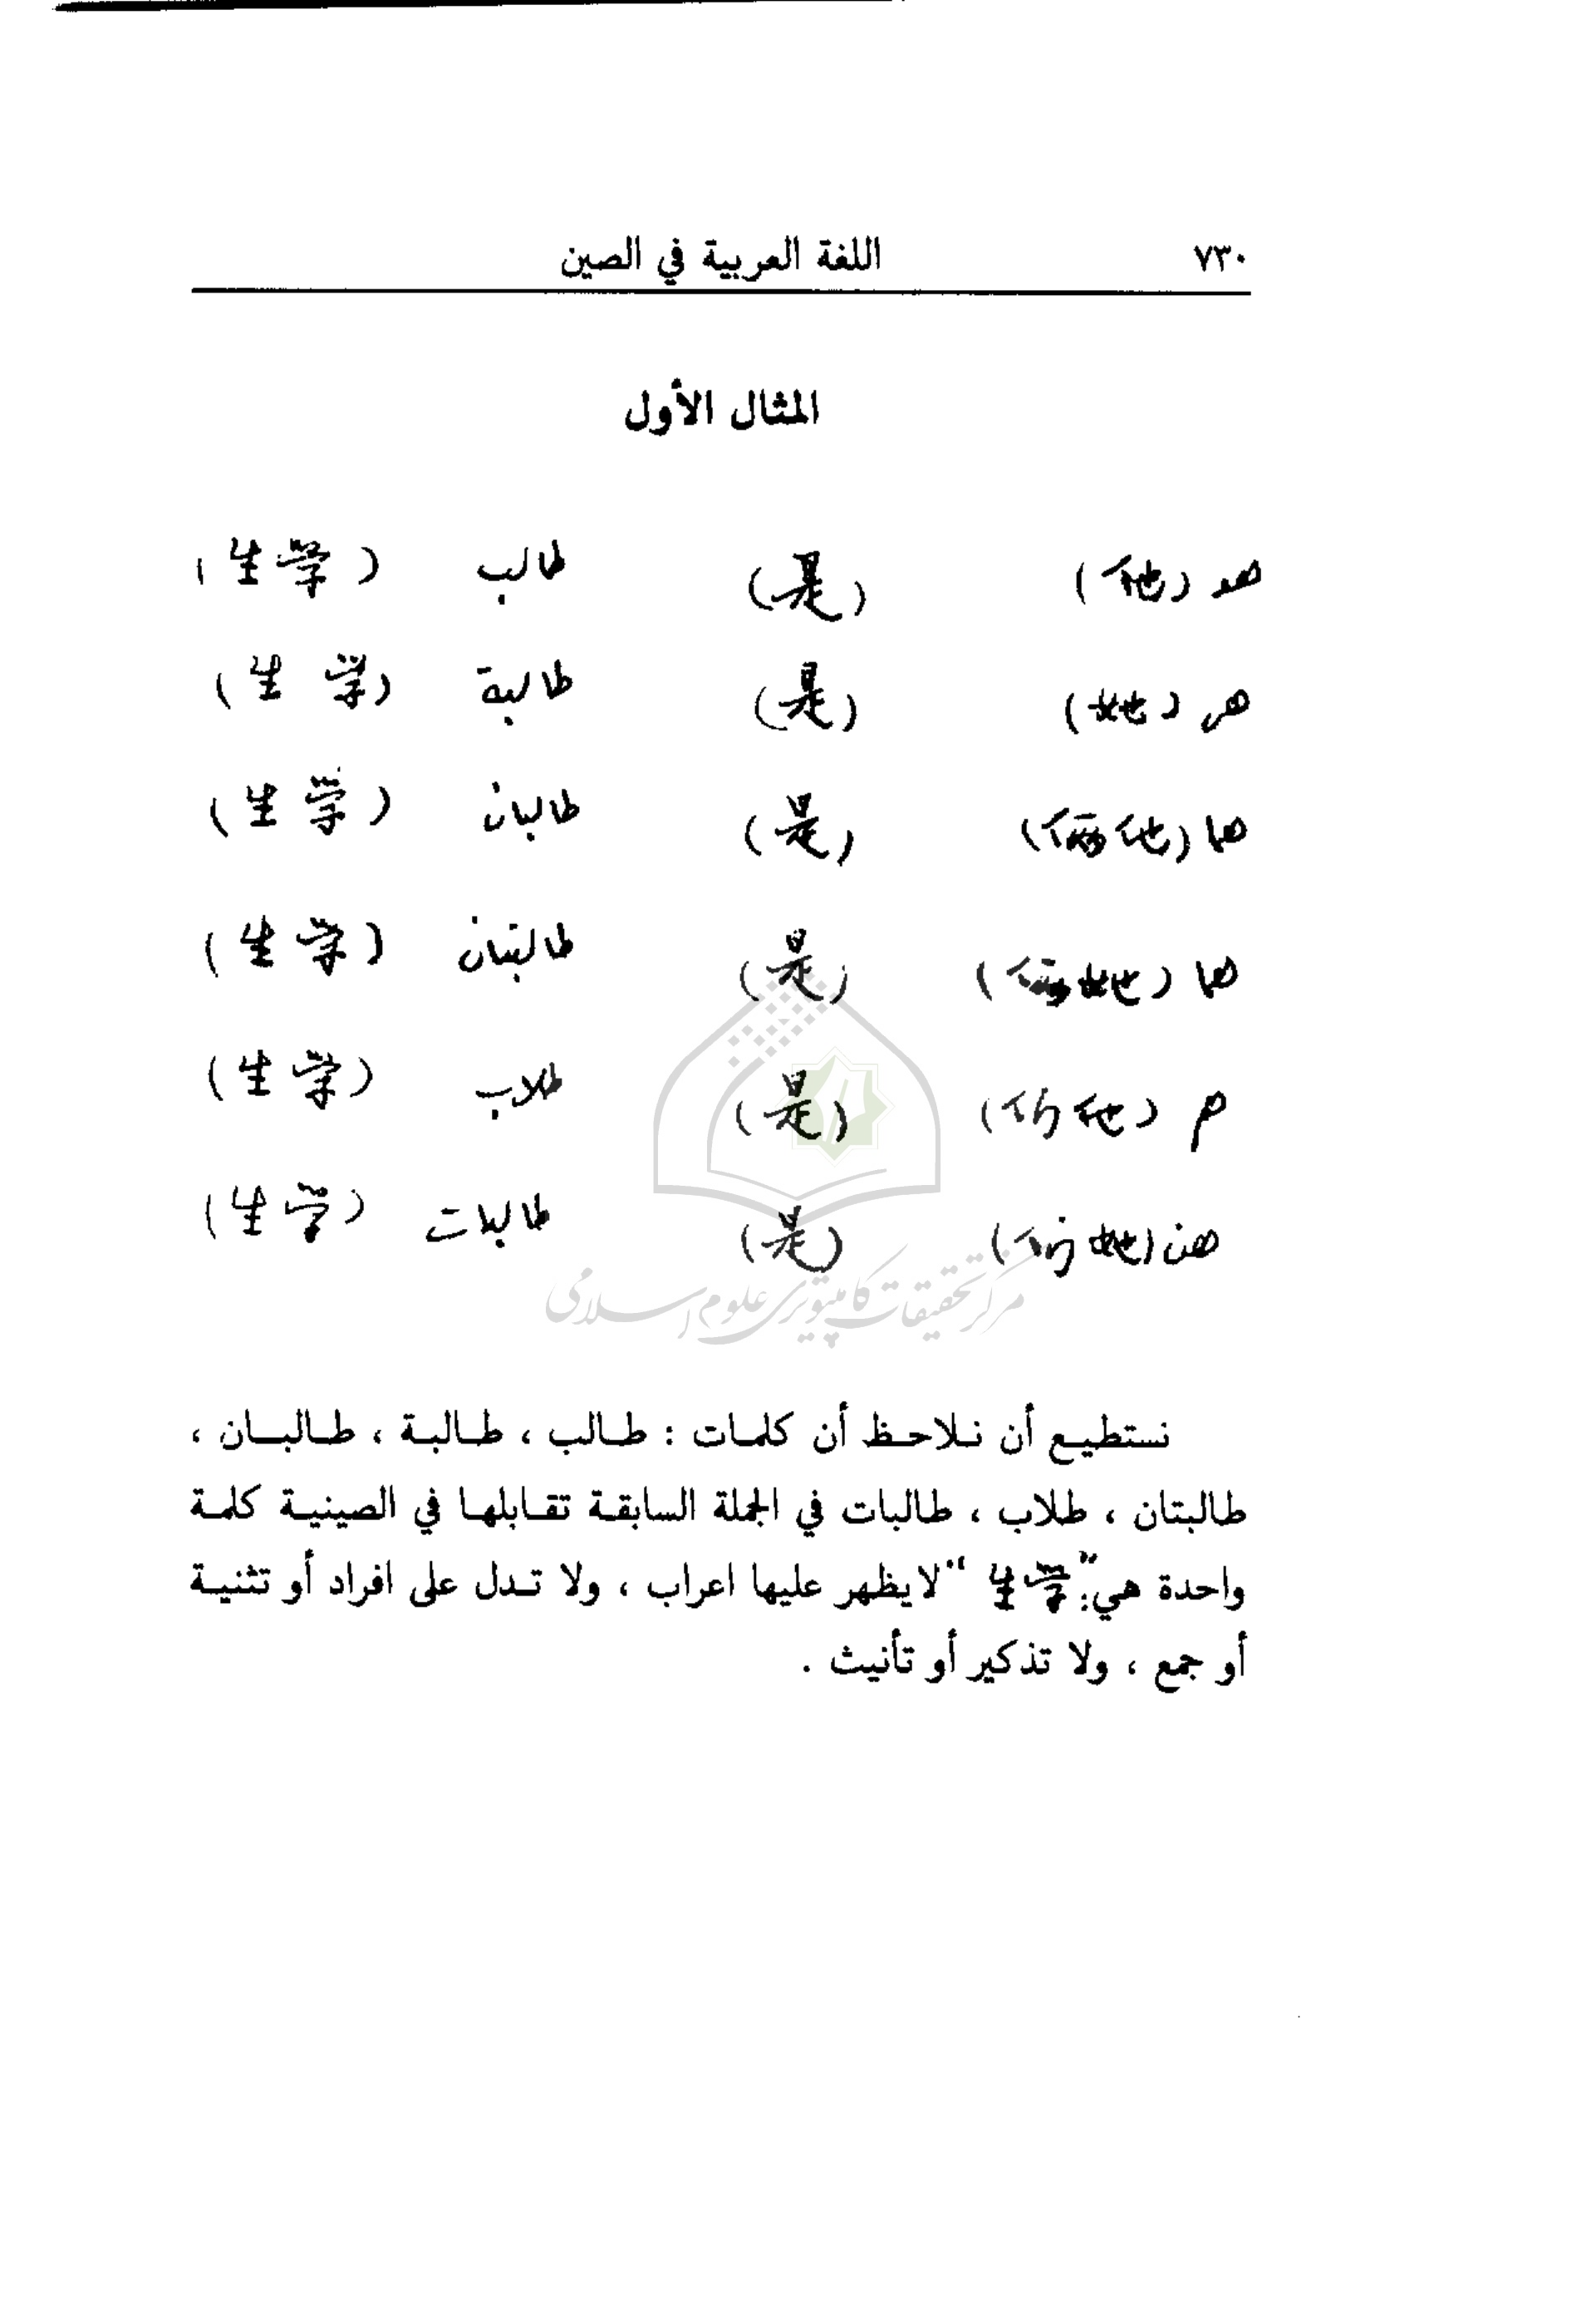 ٧٣٠ اللغة العربية في الصين
المثال الأول
هو (他) (是) طالب (生学)
هي (她) (是) طالبة (生学)
هما (俩他) (是) طالبان (生学)
هما (俩她) (是) طالبتان (生学)
هم (们他) (是) طلاب (生学)
هن (们她) (是) طالبات (生学)
مركز تحقيقات كامپيوترى علوم اسلامى
نستطيع أن نلاحظ أن كلمات : طالب ، طالبة ، طالبان ،
طالبتان ، طلاب ، طالبات في الجملة السابقة تقابلها في الصينية كلمة
واحدة هي: "生学" لا يظهر عليها اعراب ، ولا تدل على افراد أو تثنية
أو جمع ، ولا تذكير أو تأنيث .